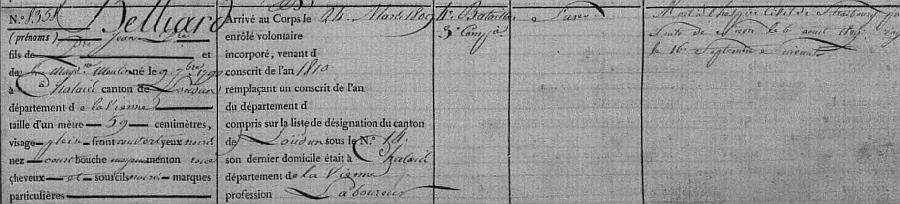 N.° 1351 Belliard
(prénoms) Jean
fils de et
de Moulin né le 9 7bre 1790
à Chalais canton de Loudun
département de la Vienne
taille d'un mètre 59 centimètres,
visage plein front couvert yeux noirs
nez court bouche moyenne menton rond
cheveux et sourcils noirs marques
particulières
Arrivé au Corps le 24 Mars 1809
enrôlé volontaire
incorporé, venant d
conscrit de l'an 1810
remplaçant un conscrit de l'an
du département d
compris sur la liste de désignation du canton
de Loudun sous le N.° 14
son dernier domicile était à Chalais
département de la Vienne
profession Laboureur
4e Bataillon
3e Comp.ie
Mort à l'hospice Civil de Strasbourg par
suite de fièvre le 6 aout 1809
le 16 Septembre suivant